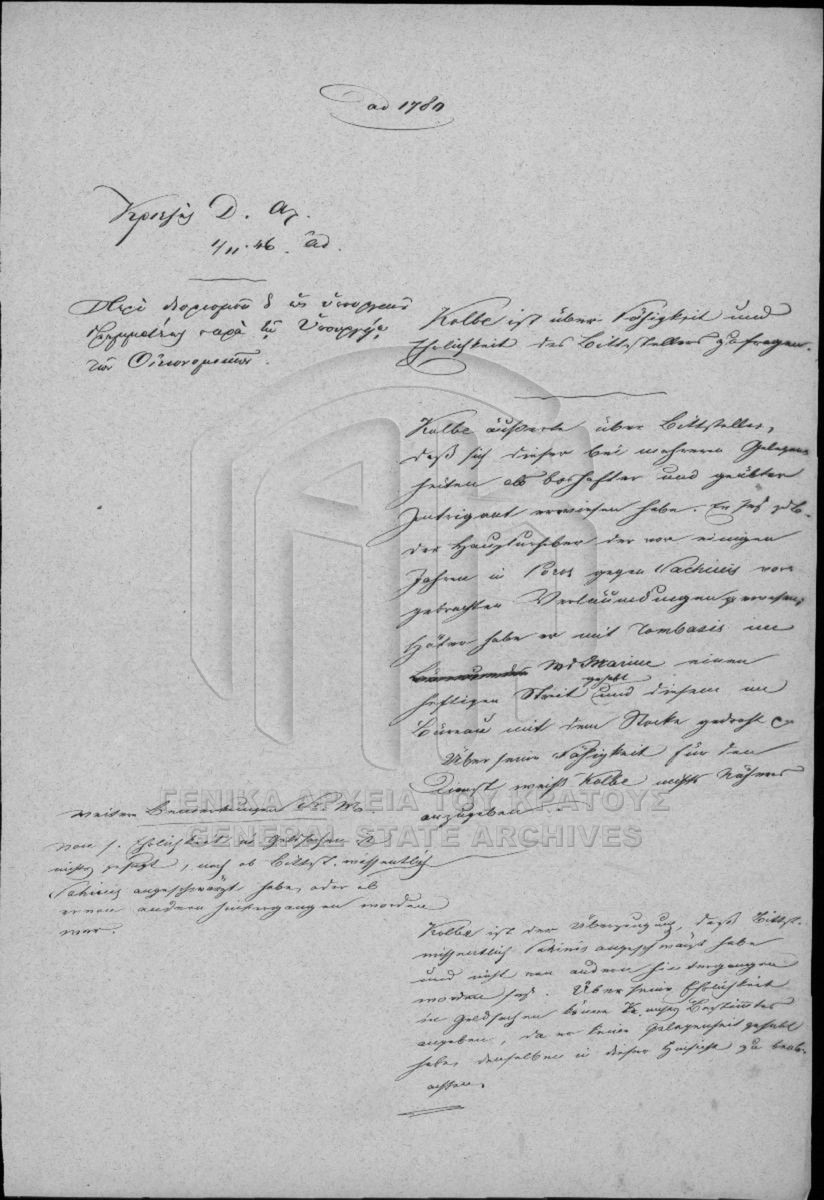 ad 1780
Κριεζής Δ. Αγ.
1/11. 46. ad.
Περὶ διορισμοῦ ὡς ὑπουργικοῦ
Γραμματέως παρὰ τῷ Ὑπουργείῳ
τῶν Οἰκονομικῶν.
Kolbe ist über Fähigkeit und
Ehrlichkeit des Bittstellers zu fragen.
Kolbe äußerte über Bittsteller,
daß sich dieser bei mehreren Gelegen-
heiten als boshafter und geübter
Intrigant erwiesen habe. Er sey z.B.
der Haupturheber der vor einigen
Jahren in Poros gegen Sachinis vor-
gebrachten Verläumdungen gewesen;
später habe er mit Tombasis im
Marine einen
heftigen Streit gehabt und diesem im
Bureau mit dem Stocke gedroht
Über seine Fähigkeit für den
Dienst weiß Kolbe nichts Näheres
anzugeben.
ΓΕΝΙΚΑ ΑΡΧΕΙΑ ΤΟΥ ΚΡΑΤΟΥΣ
GENERAL STATE ARCHIVES
Weitere Bemerkungen Sr. M.
von s. Ehrlichkeit in Geldsachen ist
nichts gesagt, noch ob Bittst. wissentlich
Sachinis angeschwärzt habe, oder ob
er von andern hintergangen worden
war.
Kolbe ist der Überzeugung, daß Bittst.
wissentlich Sachinis angeschwärzt habe
und nicht von andern hintergangen
worden sey. Über seine Ehrlichkeit
in Geldsachen könne Kolbe nichts Bestimmtes
angeben, da er keine Gelegenheit gehabt
habe, denselben in dieser Hinsicht zu beob-
achten.